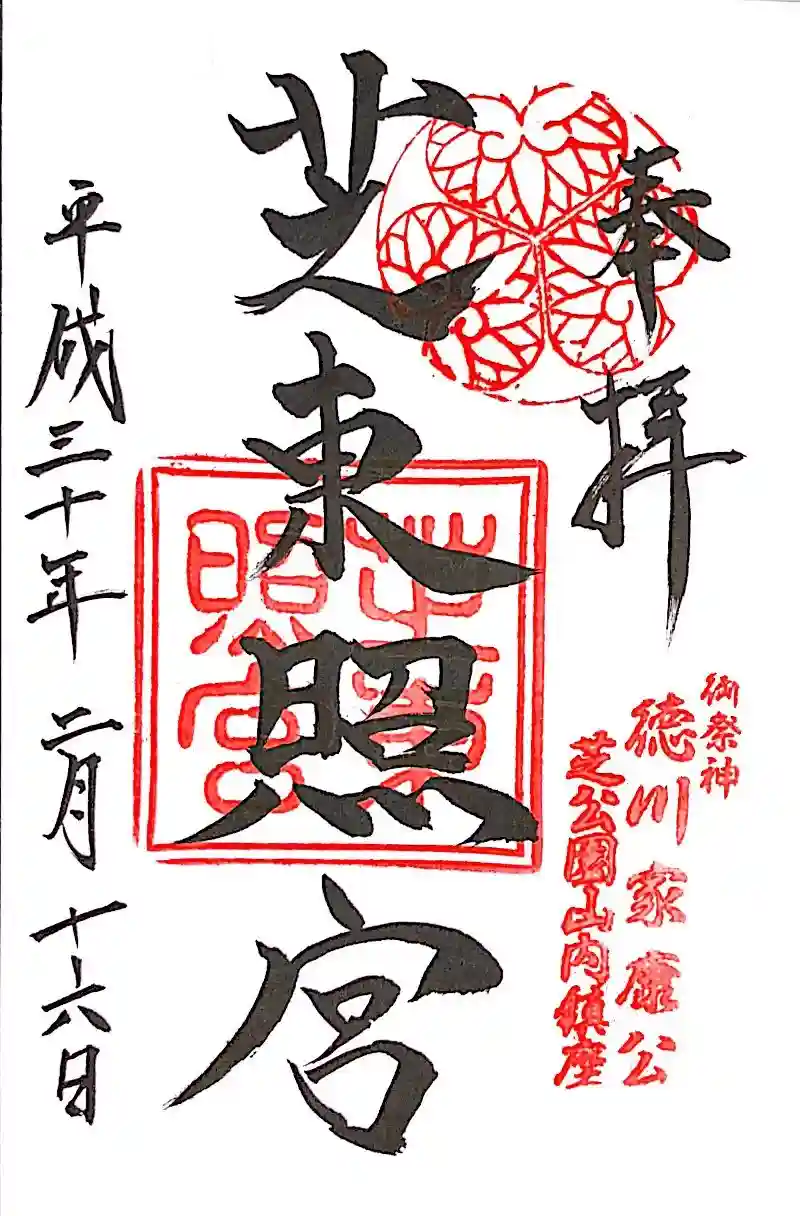 奉拝
御祭神
徳川家康公
芝公園山内鎮座
芝東照宮
芝東照宮
平成三十年二月十六日